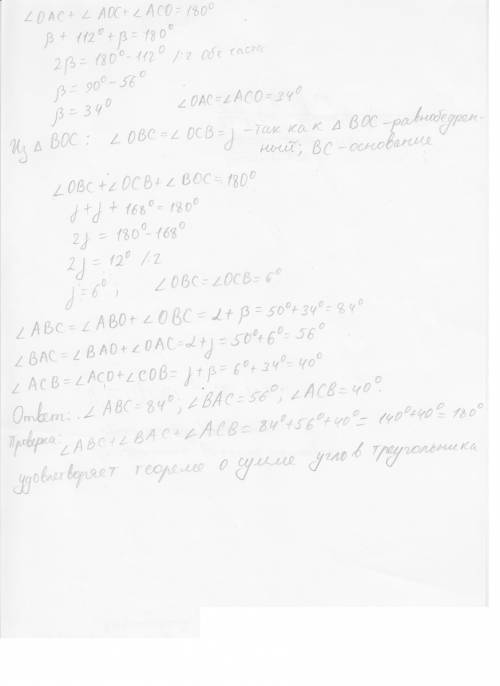 ∠OAC + ∠AOC + ∠ACO = 180⁰
β + 112⁰ + β = 180⁰
2β = 180⁰ - 112⁰ /:2 обе части
β = 90⁰ - 56⁰
β = 34⁰ ∠OAC = ∠ACO = 34⁰
Из △ BOC: ∠OBC = ∠OCB = j - так как △ BOC - равнобедрен-
ный; BC - основание
∠OBC + ∠OCB + ∠BOC = 180⁰
j + j + 168⁰ = 180⁰
2j = 180⁰ - 168⁰
2j = 12⁰ /2
j = 6⁰; ∠OBC = ∠OCB = 6⁰
∠ABC = ∠ABO + ∠OBC = α + β = 50⁰ + 34⁰ = 84⁰
∠BAC = ∠BAO + ∠OAC = α + j = 50⁰ + 6⁰ = 56⁰
∠ACB = ∠ACO + ∠COB = j + β = 6⁰ + 34⁰ = 40⁰
Ответ: ∠ABC = 84⁰; ∠BAC = 56⁰; ∠ACB = 40⁰.
Проверка: ∠ABC + ∠BAC + ∠ACB = 84⁰ + 56⁰ + 40⁰ = 140⁰ + 40⁰ = 180⁰
удовлетворяет теореме о сумме углов треугольника